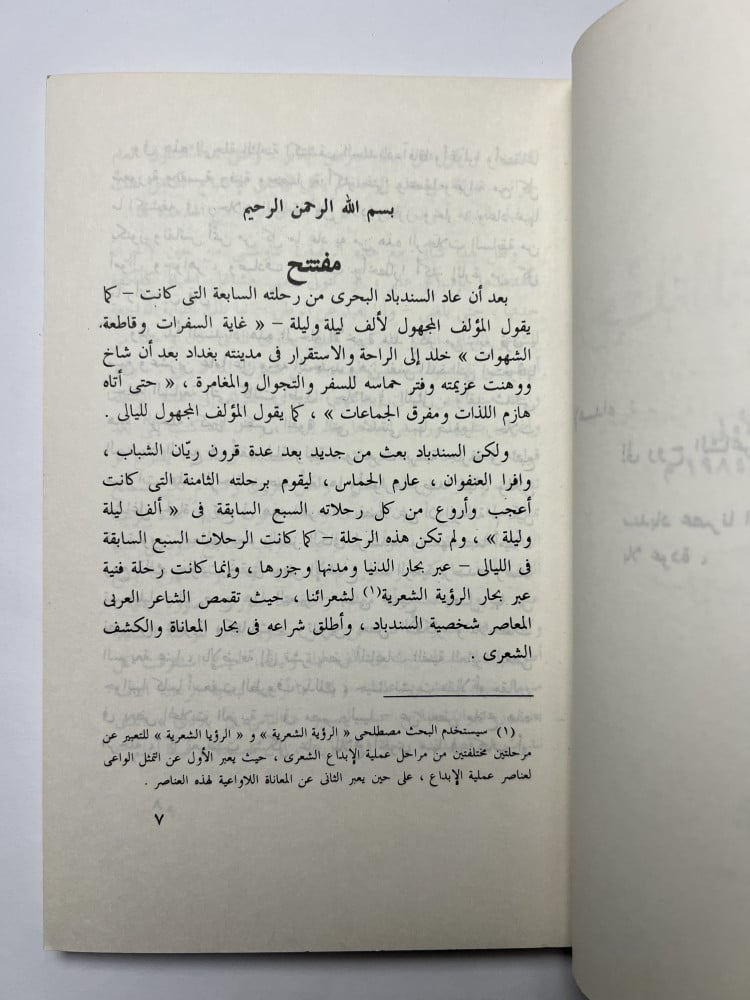 بسم الله الرحمن الرحيم
مفتتح
بعد أن عاد السندباد البحرى من رحلته السابعة التى كانت – كما
يقول المؤلف المجهول لألف ليلة وليلة – « غاية السفرات وقاطعة
الشهوات » خلد إلى الراحة والاستقرار فى مدينته بغداد بعد أن شاخ
ووهنت عزيمته وفتر حماسه للسفر والتجوال والمغامرة ، « حتى أتاه
هازم اللذات ومفرق الجماعات » ، كما يقول المؤلف المجهول لليالى .
ولكن السندباد بعث من جديد بعد عدة قرون ريّان الشباب ،
وافرا العنفوان ، عارم الحماس ، ليقوم برحلته الثامنة التى كانت
أعجب وأروع من كل رحلاته السبع السابقة فى « ألف ليلة
وليلة » ، ولم تكن هذه الرحلة – كما كانت الرحلات السبع السابقة
فى الليالى – عبر بحار الدنيا ومدنها وجزرها ، وإنما كانت رحلة فنية
عبر بحار الرؤية الشعرية(١) لشعرائنا ، حيث تقمص الشاعر العربى
المعاصر شخصية السندباد ، وأطلق شراعه فى بحار المعاناة والكشف
الشعرى .
(١) سيستخدم البحث مصطلحى « الرؤية الشعرية » و « الرؤيا الشعرية » للتعبير عن
مرحلتين مختلفتين من مراحل عملية الإبداع الشعرى ، حيث يعبر الأول عن التمثل الواعى
لعناصر عملية الإبداع ، على حين يعبر الثانى عن المعاناة اللاواعية لهذه العناصر .
٧